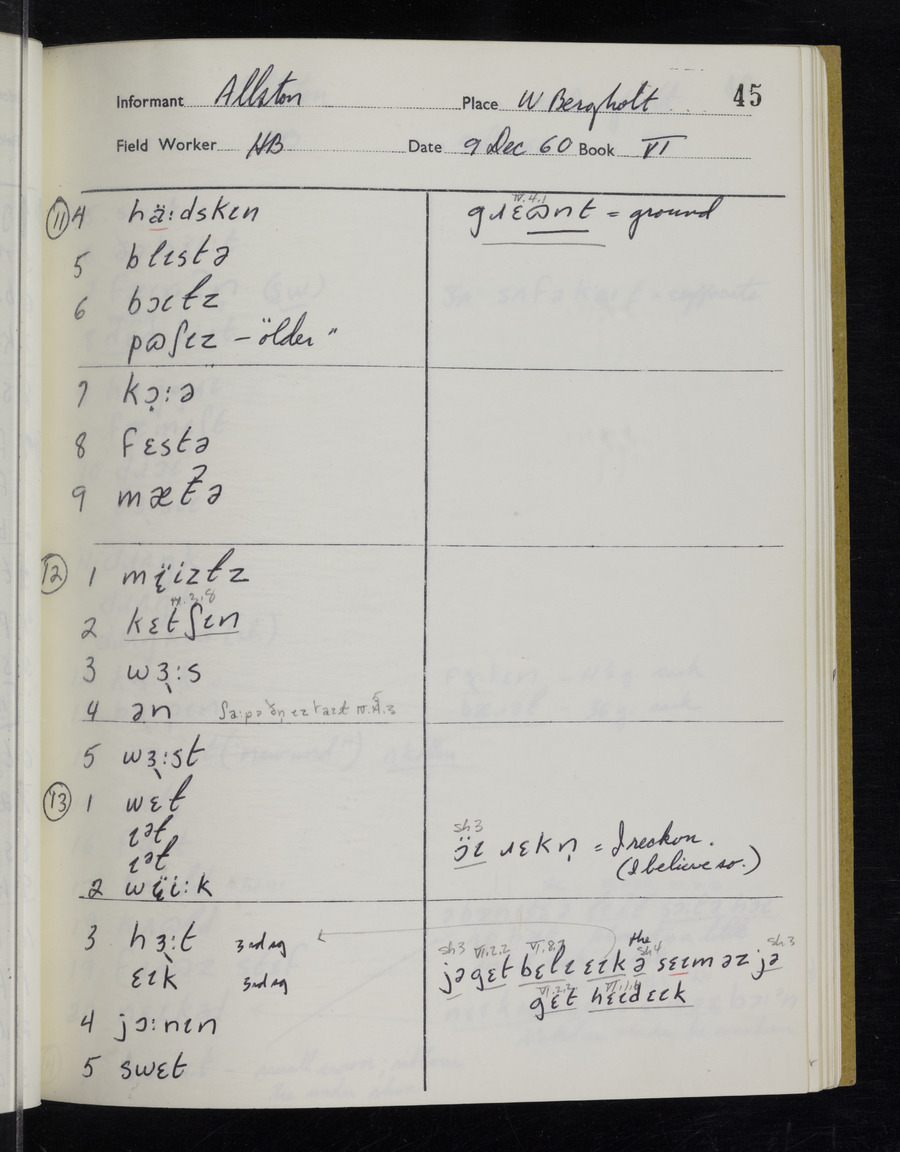 Informant Allston Place W Bergholt 45
Field Worker HB Date 9 Dec 60 Book VI
⑪ 4 hä:dskɩn
5 blɩstə
6 bɔɩɫz
pɷʃɩz – "older"
7 kɔ̣:ə
8 fɛstə
9 mætə
⑫ 1
IV.2.8
2 kɛtʃɩn
3 wɜ:s
4 ən
5 wɜ:st
⑬ 1 wɛt
ɩət
ɩət
2
3 hɜ:t 3rd sg
ɛɩk 3rd sg
4 jɔ:nɩn
5 swɛt
IV.4.1
gɹɛɷnt = ground
sh3
ɔ̈ɩ ɹɛkn̩ = I reckon.
(I believe so.)
the
sh3 VI.2.2 VI.8.7 sh4 sh3
jə gɛt bɛlɩ ɛɩk ə sɛɩm əz jə
VI.2.2
gɛt hɛɩdɛɩk